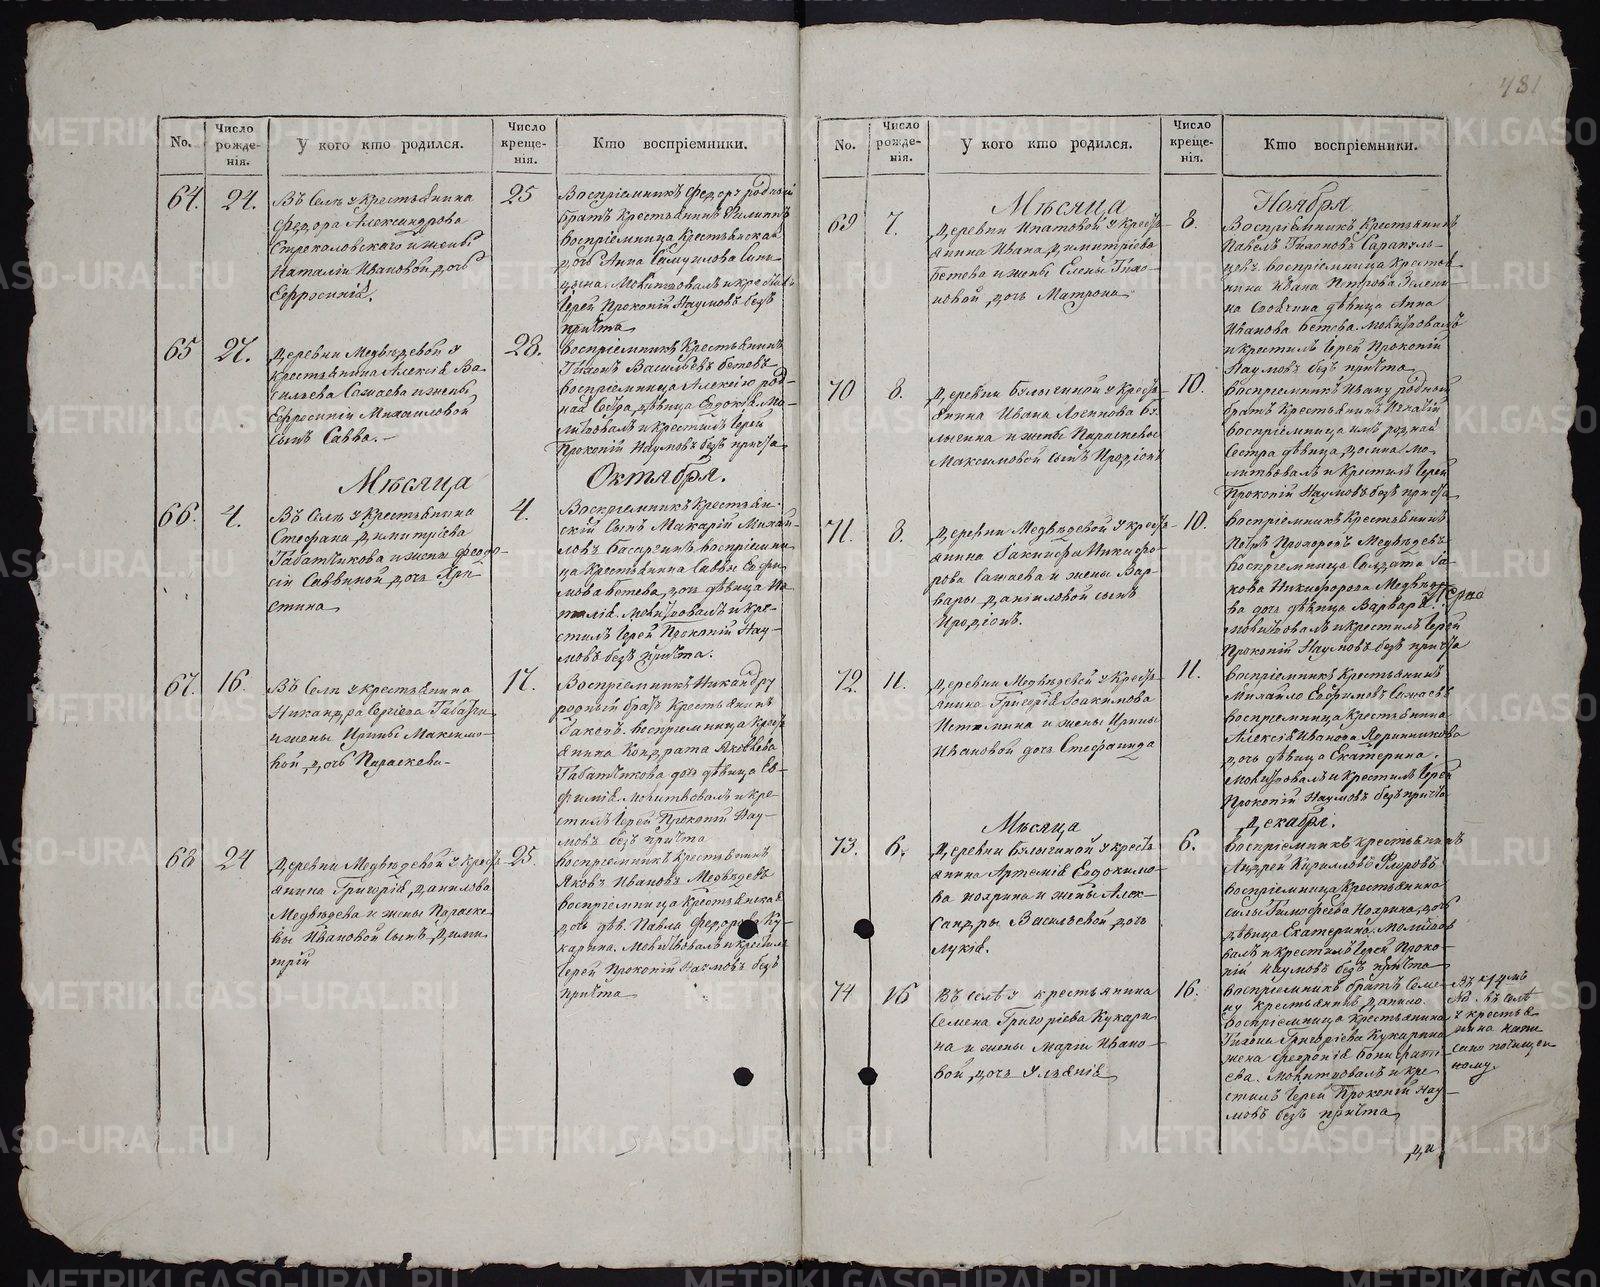 481
No.
Число рожде-нія.
У кого кто родился.
Число креще-нія.
Кто воспріемники.
64.
24.
Въ Селѣ у крестьянина
Федора Александрова
и жены
Наталіи Ивановой дочь
Евфросинія.
25
Воспріемникъ Федору родный
братъ крестьянинъ Филиппъ
воспріемница крестьянская
дочь Анна Самуилова
Молитвовалъ и крестилъ
Іерей Прокопій Наумовъ безъ
причта
65
27.
Деревни Медвѣдевой у
крестьянина Алексія Ва-
сильева Сажаева и жены
Евфросиніи Михайловой
сынъ Савва.
28.
Воспріемникъ крестьянинъ
Тихонъ Васильевъ Бетевъ
воспріемница Алексію род-
ная сестра, дѣвица Евдокія Мо-
литвовалъ и крестилъ Іерей
Прокопій Наумовъ безъ причта
Мѣсяца
Октября.
66.
4.
Въ Селѣ у крестьянина
Стефана Димитріева
Табатчикова и жены Феодо-
сіи Саввиной дочь Хри-
стина
4.
Воспріемникъ крестьян-
скій сынъ Макарій Михай-
ловъ Басаргинъ воспріемни-
ца крестьянина Саввы
Бетева дочь дѣвица На-
талія. Молитвовалъ и кре-
стилъ Іерей Прокопій Нау-
мовъ безъ причта.
67.
16.
Въ Селѣ у крестьянина
Никандра Сергіева
и жены Ирины Максимо-
вой дочь Параскева
17.
Воспріемникъ Никандру
родный братъ крестьянинъ
Іаковъ. воспріемница крест-
янина Кондрата Яковлева
Табатчикова дочь дѣвица Ев-
фимія. Молитвовалъ и кре-
стилъ Іерей Прокопій Нау-
мовъ безъ причта
68
24
Деревни Медвѣдевой у крест-
янина Григорія Данилова
Медвѣдева и жены Параске-
вы Ивановой сынъ Дими-
трій
25.
Воспріемникъ крестьянинъ
Яковъ Ивановъ Медвѣдевъ
воспріемница крестьянская
дочь дѣв. Павла Федорова Ку-
карина. Молитвовалъ и крестилъ
Іерей Прокопій Наумовъ безъ
причта
No.
Число рожде-нія.
У кого кто родился.
Число креще-нія.
Кто воспріемники.
Мѣсяца
Ноября
69
7.
Деревни Ипатовой у крест-
янина Ивана Димитріева
Бетева и жены Елены Тихо-
новой дочь Матрона
8.
Воспріемникъ крестьянинъ
Павелъ Тихоновъ Сарапуль-
цевъ. воспріемница крестья-
нина Ивана Петрова
дѣвица Анна
Иванова Бетева. Молитвовалъ
и крестилъ Іерей Прокопій
Наумовъ безъ причта
70
8.
Деревни Булычиной у крест-
янина Ивана Бу-
лычина и жены Параскевы
Максимовой сынъ Иродіонъ
10.
Воспріемникъ Ивану родной
братъ крестьянинъ Игнатій
воспріемница имъ родная
сестра дѣвица Мо-
литвовалъ и крестилъ Іерей
Прокопій Наумовъ безъ причта
71.
8.
Деревни Медвѣдевой у крест-
янина Никифо-
рова Сажаева и жены Вар-
вары Даніиловой сынъ
Иродіонъ.
10.
Воспріемникъ крестьянинъ
Петръ Прохоровъ Медвѣдевъ
воспріемница Солдата Іа-
кова Никифорова Медвѣде-
ва дочь дѣвица Варвара.
Молитвовалъ и крестилъ Іерей
Прокопій Наумовъ безъ причта
72.
11.
Деревни Медвѣдевой у крест-
янина Григорія Іоакимова
Истомина и жены Ирины
Ивановой дочь Стефанида
11.
Воспріемникъ крестьянинъ
Михайло Евфимовъ Сажаевъ
воспріемница крестьянина
Алексія Иванова
дочь дѣвица Екатерина.
Молитвовалъ и крестилъ Іерей
Прокопій Наумовъ безъ причта
Мѣсяца
Декабря.
73.
6.
Деревни Булычиной у крестъ-
янина Артемія Евдокимо-
ва Нохрина и жены Алек-
сандры Васильевой дочь
Лукія.
6.
Воспріемникъ крестьянинъ
Андрей Кирилловъ Флоровъ
воспріемница крестьянина
Силы Тимофеева Нохрина дочь
дѣвица Екатерина. Молитво-
валъ и крестилъ Іерей Проко-
пій Наумовъ безъ причта
74
16
Въ селѣ у крестьянина
Семена Григоріева Кукари-
на и жены Маріи Ивано-
вой дочь Уліанія
16.
Воспріемникъ братъ Семе-
ну крестьянинъ Данило.
воспріемница крестьянина
Тихона Григоріева Кукарина
жена Феврония Бонифатi-
ева. Молитвовалъ и кре-
стилъ Іерей Прокопій Нау-
мовъ безъ причта
въ селѣ
у крестья-
нина напи-
сано по чищен-
ному.